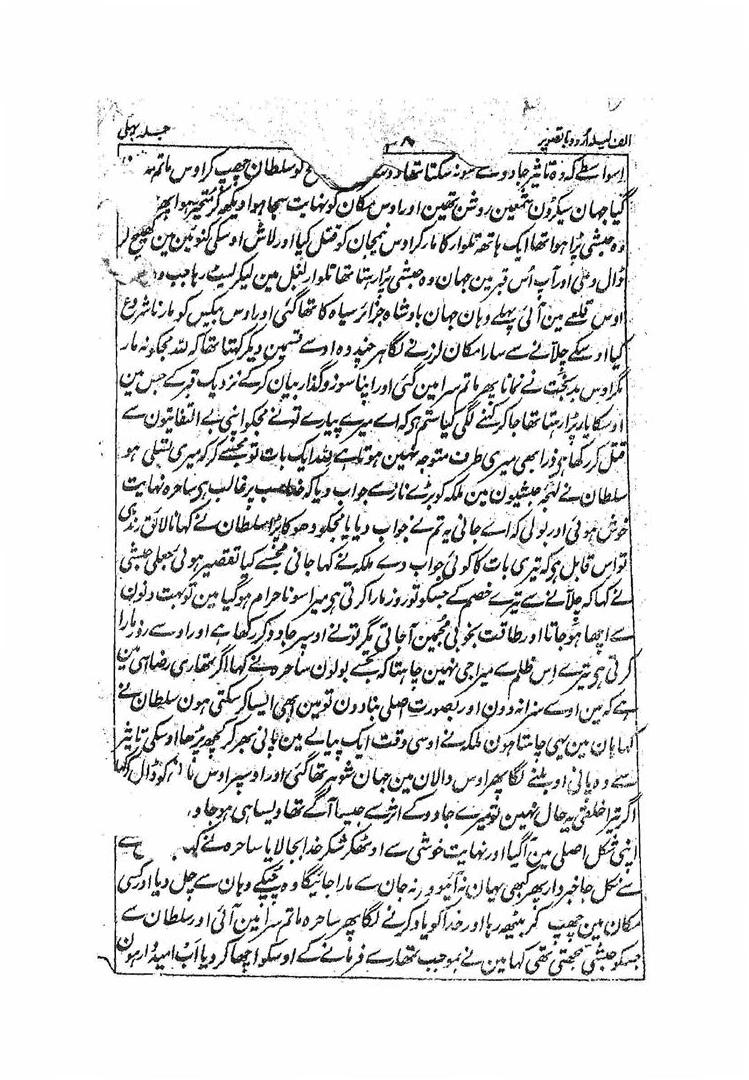 الف لیلہ اردو با تصویر ۳۸ جلد پہلی
اسواسطے کہ وہ تاثیر جادو سے سو نہ سکتا تھا دوسرے کو سلطان چھپ کر اوس ماتم
گیا جہان سیکڑون شمعین روشن تھین اور اوس مکان کو نہایت سجا ہوا دیکھ کر متحیر ہوا پھر
وہ حبشی پڑا ہوا تھا ایک ہاتھ تلوار کا مار کر اوس نیمجان کو قتل کیا اور لاش اوسکی کنوئین مین کھینچ کر
ڈال دی اور آپ اُس قبر مین جہان وہ حبشی پڑا رہتا تھا تلوار بغل مین لیکر لیٹ رہا جب وہ
اوس قلعے مین آئی پہلے وہان جہان بادشاہ جزائر سیاہ کا تھا گئی اور اوس بیکس کو مارنا شروع
کیا اوسکے چلّانے سے سارا مکان لرزنے لگا ہر چند وہ اوسے قسمین دیکر کہتا تھا کہ للہ مجکو نہ مار
مگر اوس بدبخت نے نمانا پھر ماتم سرا مین گئی اور اپنا سوز و گداز بیان کر کے نزدیک قبر کے جس مین
اوسکا یار پڑا رہتا تھا جا کر کہنے لگی کیا ستم ہی کہ اے میرے پیارے تو نے مجکو اپنی بے التفاتیون سے
قتل کر رکھا ہی ذرا بھی میری طرف متوجہ نہین ہوتا ہے للہ ایک بات تو مجھسے کر کہ میری تسلی ہو
سلطان نے لہجہ حبشیون مین ملکہ کو بڑے ناز سے جواب دیا کہ خدا سب پر غالب ہی ساحرہ نہایت
خوش ہوئی اور بولی کہ اے جانی یہ تم نے جواب دیا یا مجکو دھوکا پڑا سلطان نے کہا نالائق رنڈی
تو اس قابل ہی کہ تیری بات کا کوئی جواب دے ملکہ نے کہا جانی مجھسے کیا تقصیر ہوئی جعلی حبشی
نے کہا کہ چلّانے سے تیرے خصم کے جسکو تو روز مارا کرتی ہی میرا سونا حرام ہو گیا مین تو بہت دنون
سے اچھا ہو جاتا اور طاقت بخوبی مجھمین آجاتی مگر تو نے اوسپر جادو کر رکھا ہے اور اوسے روز مارا
کرتی ہی تیرے اِس ظلم سے میرا جی نہین چاہتا کہ تجھسے بولون ساحرہ نے کہا اگر تمھاری رضا اسی مین
ہے کہ مین اوسے سزا نہ دون اور بصورت اصلی بنا دون تو مین ابھی ایسا کر سکتی ہون سلطان نے
کہا ہان مین یہی چاہتا ہون ملکہ نے اوسی وقت ایک پیالے مین پانی بھر کر کچھ پڑھا اوسکی تاثیر
سے وہ پانی اوبلنے لگا پھر اوس دالان مین جہان شوہر تھا گئی اور اوسپر اوس کو ڈال کہا
اگر تیرا خلقی یہ حال نہین تو میرے جادو کے اثر سے جیسا آگے تھا ویسا ہی ہو جا وہ
اپنی شکل اصلی مین آگیا اور نہایت خوشی سے اوٹھکر شکر خدا بجا لایا ساحرہ نے کہا سے
نے نکل جا خبردار پھر کبھی یہان نہ آئیو ورنہ جان سے مارا جائیگا وہ چپکے وہان سے چل دیا اور کسی
مکان مین چھپ کر بیٹھ رہا اور خدا کو یاد کرنے لگا پھر ساحرہ ماتم سرا مین آئی اور سلطان سے
جسکو حبشی سمجھتی تھی کہا مین نے بموجب تمھارے فرمانے کے اوسکو اچھا کر دیا اب امیدوار ہون